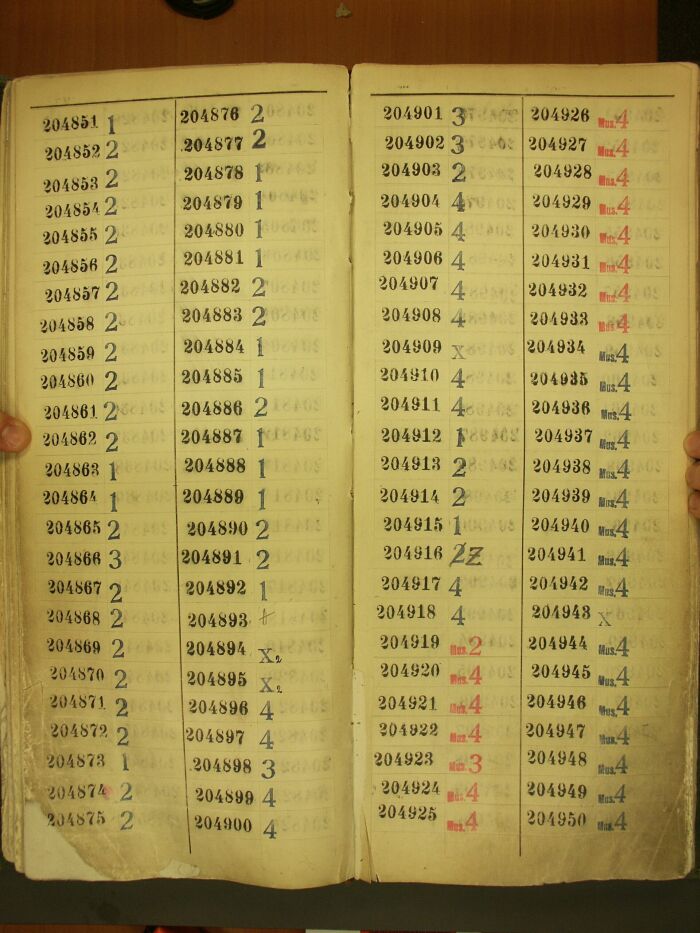 204851 1
204852 2
204853 2
204854 2
204855 2
204856 2
204857 2
204858 2
204859 2
204860 2
204861 2
204862 2
204863 1
204864 1
204865 2
204866 3
204867 2
204868 2
204869 2
204870 2
204871 2
204872 2
204873 1
204874 2
204875 2
204876 2
204877 2
204878 1
204879 1
204880 1
204881 1
204882 2
204883 2
204884 1
204885 1
204886 2
204887 1
204888 1
204889 1
204890 2
204891 2
204892 1
204893
204894 X2
204895 X2
204896 4
204897 4
204898 3
204899 4
204900 4
204901 3
204902 3
204903 2
204904 4
204905 4
204906 4
204907 4
204908 4
204909 X
204910 4
204911 4
204912 1
204913 2
204914 2
204915 1
204916 2
204917 4
204918 4
204919 Mus.2
204920 Mus.4
204921 Mus.4
204922 Mus.4
204923 Mus.3
204924 Mus.4
204925 Mus.4
204926 Mus.4
204927 Mus.4
204928 Mus.4
204929 Mus.4
204930 Mus.4
204931 Mus.4
204932 Mus.4
204933 Mus.4
204934 Mus.4
204935 Mus.4
204936 Mus.4
204937 Mus.4
204938 Mus.4
204939 Mus.4
204940 Mus.4
204941 Mus.4
204942 Mus.4
204943 X
204944 Mus.4
204945 Mus.4
204946 Mus.4
204947 Mus.4
204948 Mus.4
204949 Mus.4
204950 Mus.4